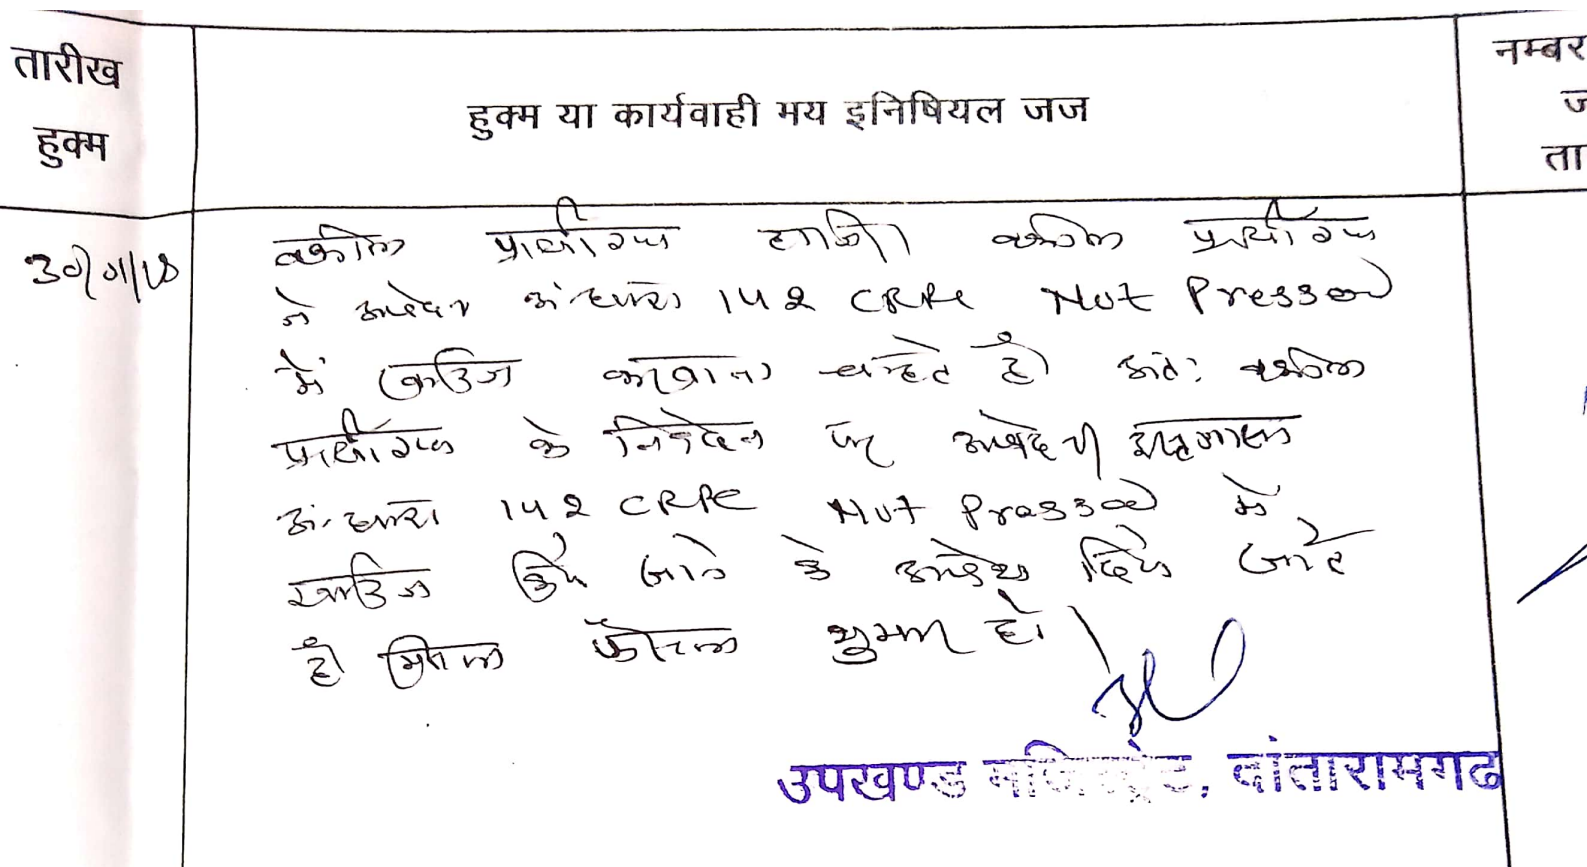 तारीख
हुक्म
हुक्म या कार्यवाही मय इनिषियल जज
नम्बर
ज
ता
वकील प्रार्थीगण हाजिर। वकील प्रार्थीगण
ने आवेदन अं.धारा 142 CRPC Not Pressed
में खारिज करवाना चाहते है। अतः वकील
प्रार्थीगण के निवेदन पर आवेदन
अं.धारा 142 CRPC Not Pressed में
खारिज किये जाने के आदेश दिये जाते
है। मिसल फैसल शुमार हो।
उपखण्ड मजिस्ट्रेट, दांतारामगढ